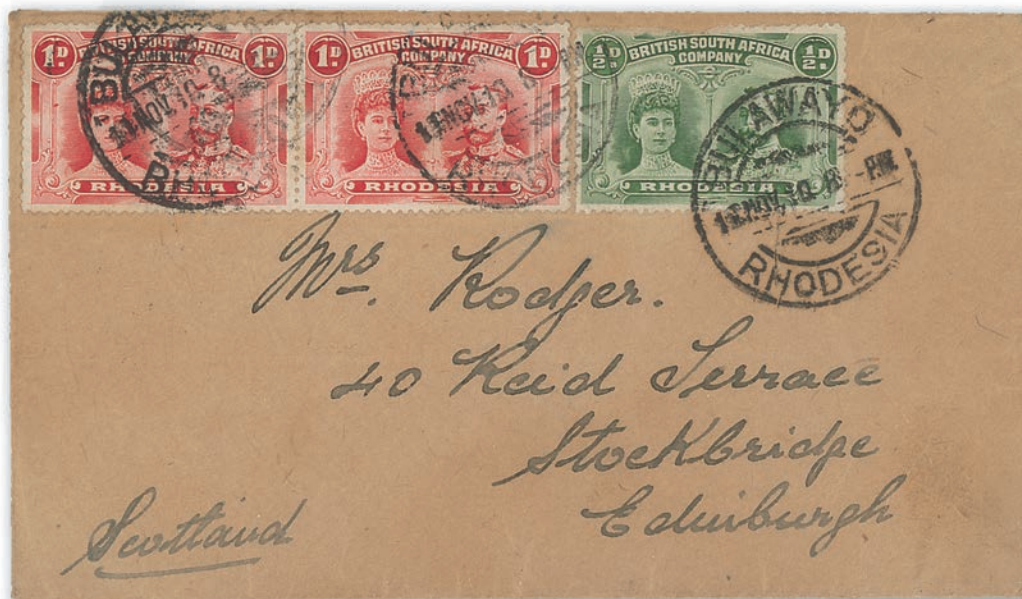 1D BRITISH SOUTH AFRICA COMPANY 1D
RHODESIA
1D BRITISH SOUTH AFRICA COMPANY 1D
RHODESIA
½D BRITISH SOUTH AFRICA COMPANY ½D
RHODESIA
BULAWAYO
NOV 10
RHODESIA
Mrs. Rodger.
40 Reid Terrace
Stockbridge
Edinburgh
Scotland